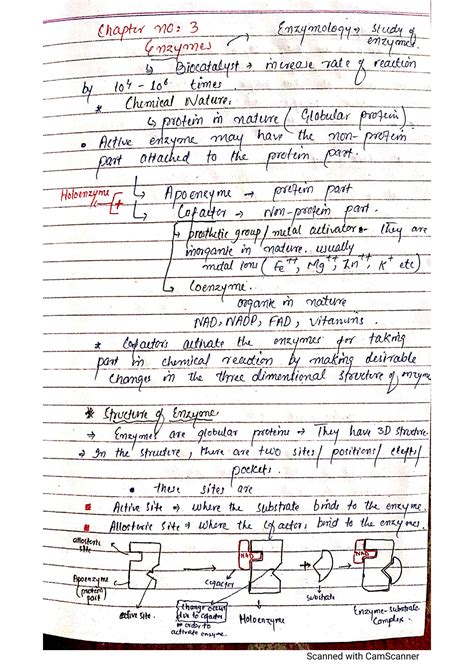 Chapter no: 3
Enzymology → study of enzymes.
Enzymes
↳ Biocatalyst → increase rate of reaction
by 10⁴ - 10⁶ times.
* Chemical Nature.
↳ protein in nature (Globular protein)
• Active enzyme may have the non-protein
part attached to the protein part.
Holoenzyme
↳ Apoenzyme → protein part
+
↳ Cofactor → Non-protein part.
→ prosthetic group/metal activator → They are
inorganic in nature. usually
metal ions (Fe⁺⁺, Mg⁺⁺, Zn⁺⁺, K⁺ etc)
↳ Coenzyme.
organic in nature
NAD, NADP, FAD, vitamins.
* Cofactors activate the enzymes for taking
part in chemical reaction by making desirable
changes in the three dimentional structure of enzyme
* Structure of Enzyme
→ Enzymes are globular proteins → They have 3D structure.
→ In the structure, there are two sites/positions/clefts/
pockets.
• these sites are
Active site → where the substrate binds to the enzyme.
Allostoric site → where the cofactors bind to the enzymes.
allostoric site
Apoenzyme
(protein part)
active site.
NAD
cofactor
change occur due to cofactor in order to activate enzyme.
NAD
Holoenzyme
substrate
NAD
Enzyme-substrate Complex.
Scanned with CamScanner